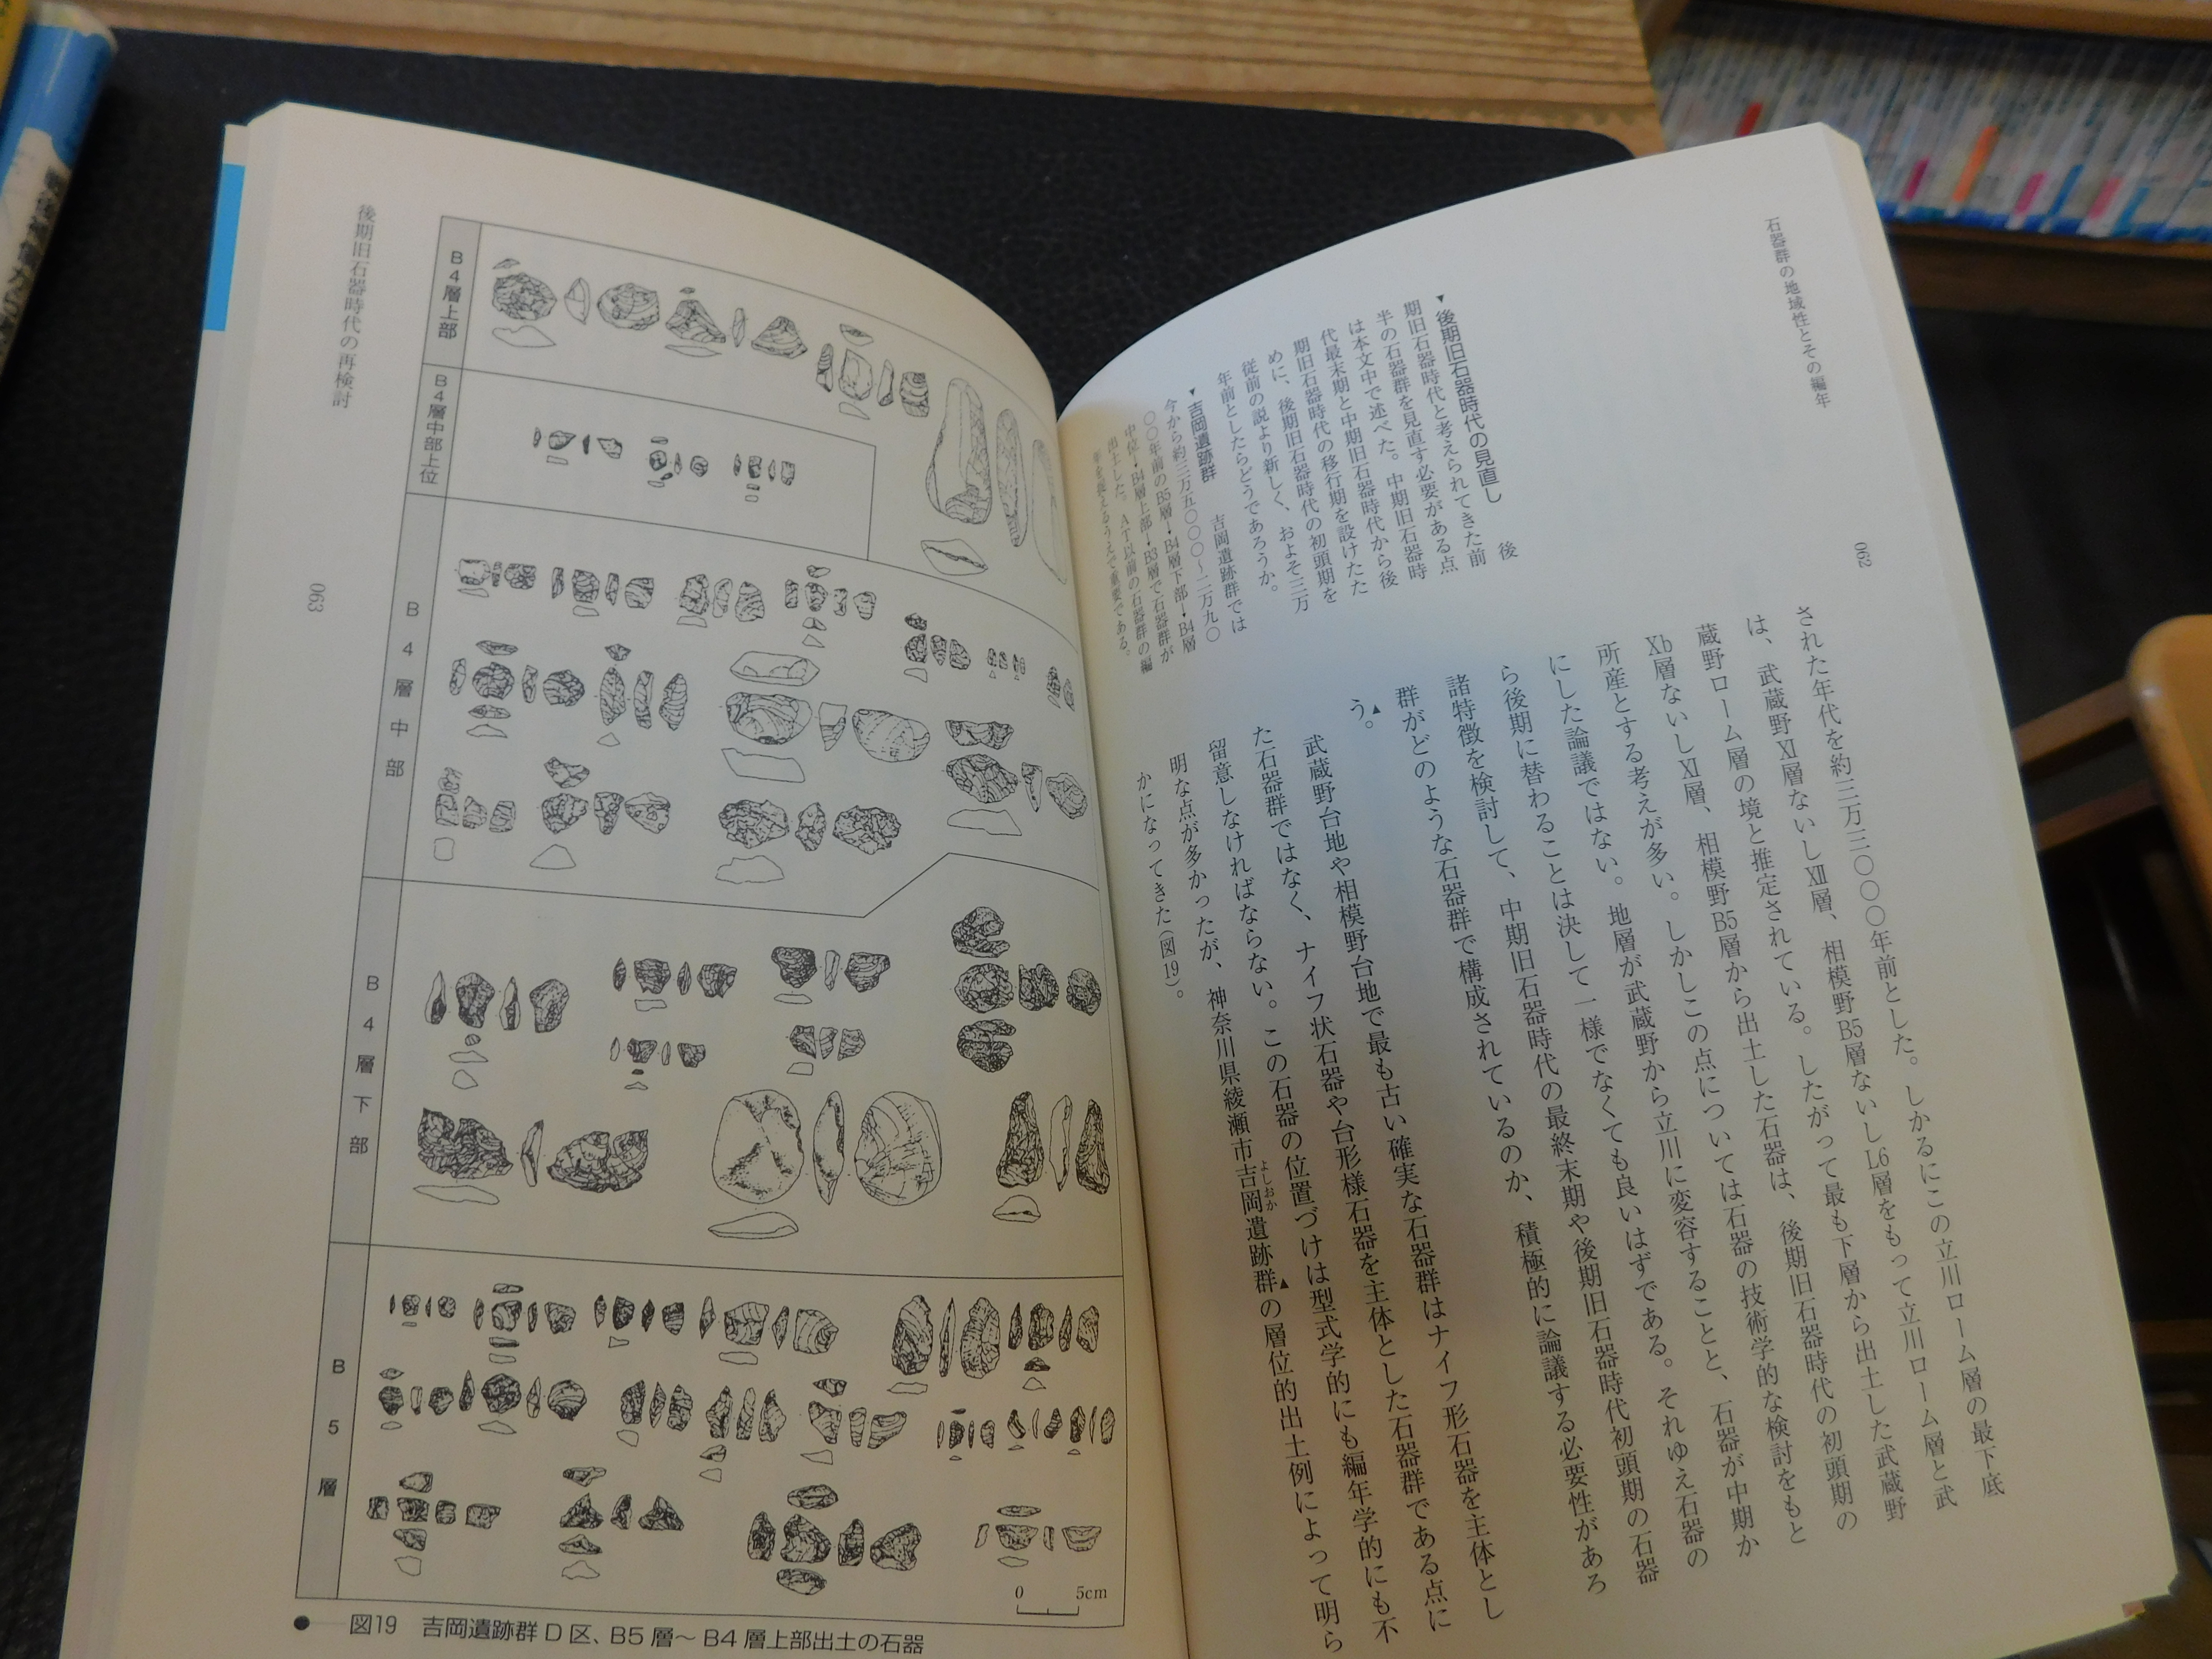 石器群の地域性とその編年
062
された年代を約三万三〇〇〇年前とした。しかるにこの立川ローム層の最下底
は、武蔵野Ⅺ層ないしⅫ層、相模野B5層ないしL6層をもって立川ローム層と武
蔵野ローム層の境と推定されている。したがって最も下層から出土した武蔵野
Ⅹb層ないしⅪ層、相模野B5層から出土した石器は、後期旧石器時代の初頭期の
所産とする考えが多い。しかしこの点については石器の技術学的な検討をもと
にした論議ではない。地層が武蔵野から立川に変容することと、石器が中期か
ら後期に替わることは決して一様でなくても良いはずである。それゆえ石器の
諸特徴を検討して、中期旧石器時代の最終末期や後期旧石器時代初頭期の石器
群がどのような石器群で構成されているのか、積極的に論議する必要性があろ
う。▲
武蔵野台地や相模野台地で最も古い確実な石器群はナイフ形石器を主体とし
た石器群ではなく、ナイフ状石器や台形様石器を主体とした石器群である点に
留意しなければならない。この石器の位置づけは型式学的にも編年学的にも不
明な点が多かったが、神奈川県綾瀬市吉岡遺跡群▲の層位的出土例によって明ら
よしおか
かになってきた(図19)。
▼後期旧石器時代の見直し 後
期旧石器時代と考えられてきた前
半の石器群を見直す必要がある点
は本文中で述べた。中期旧石器時
代最末期と中期旧石器時代から後
期旧石器時代の移行期を設けたた
めに、後期旧石器時代の初頭期を
従前の説より新しく、およそ三万
年前としたらどうであろうか。
▼吉岡遺跡群 吉岡遺跡群では
今から約三万五〇〇〇〜二万九〇
〇〇年前のB5層→B4層下部→B4層
中位→B4層上部→B3層で石器群が
出土した。AT以前の石器群の編
年を捉えるうえで重要である。
後期旧石器時代の再検討
063
B4層上部
B4層中部上位
B4層中部
B4層下部
B5層
0 5cm
●──図19 吉岡遺跡群D区、B5層〜B4層上部出土の石器